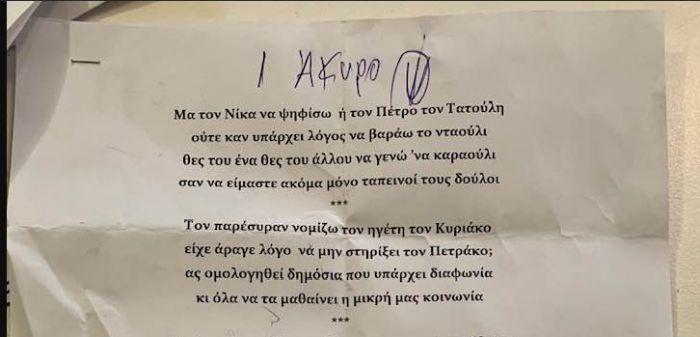 1 ΑΚΥΡΟ
Μα τον Νίκα να ψηφίσω ή τον Πέτρο τον Τατούλη
ούτε καν υπάρχει λόγος να βαράω το νταούλι
θες του ένα θες του άλλου να γενώ 'να καραούλι
σαν να είμαστε ακόμα μόνο ταπεινοί τους δούλοι
***
Τον παρέσυραν νομίζω τον ηγέτη τον Κυριάκο
είχε άραγε λόγο νά μην στηρίξει τον Πετράκο;
ας ομολογηθεί δημόσια που υπάρχει διαφωνία
κι όλα να τα μαθαίνει η μικρή μας κοινωνία
***